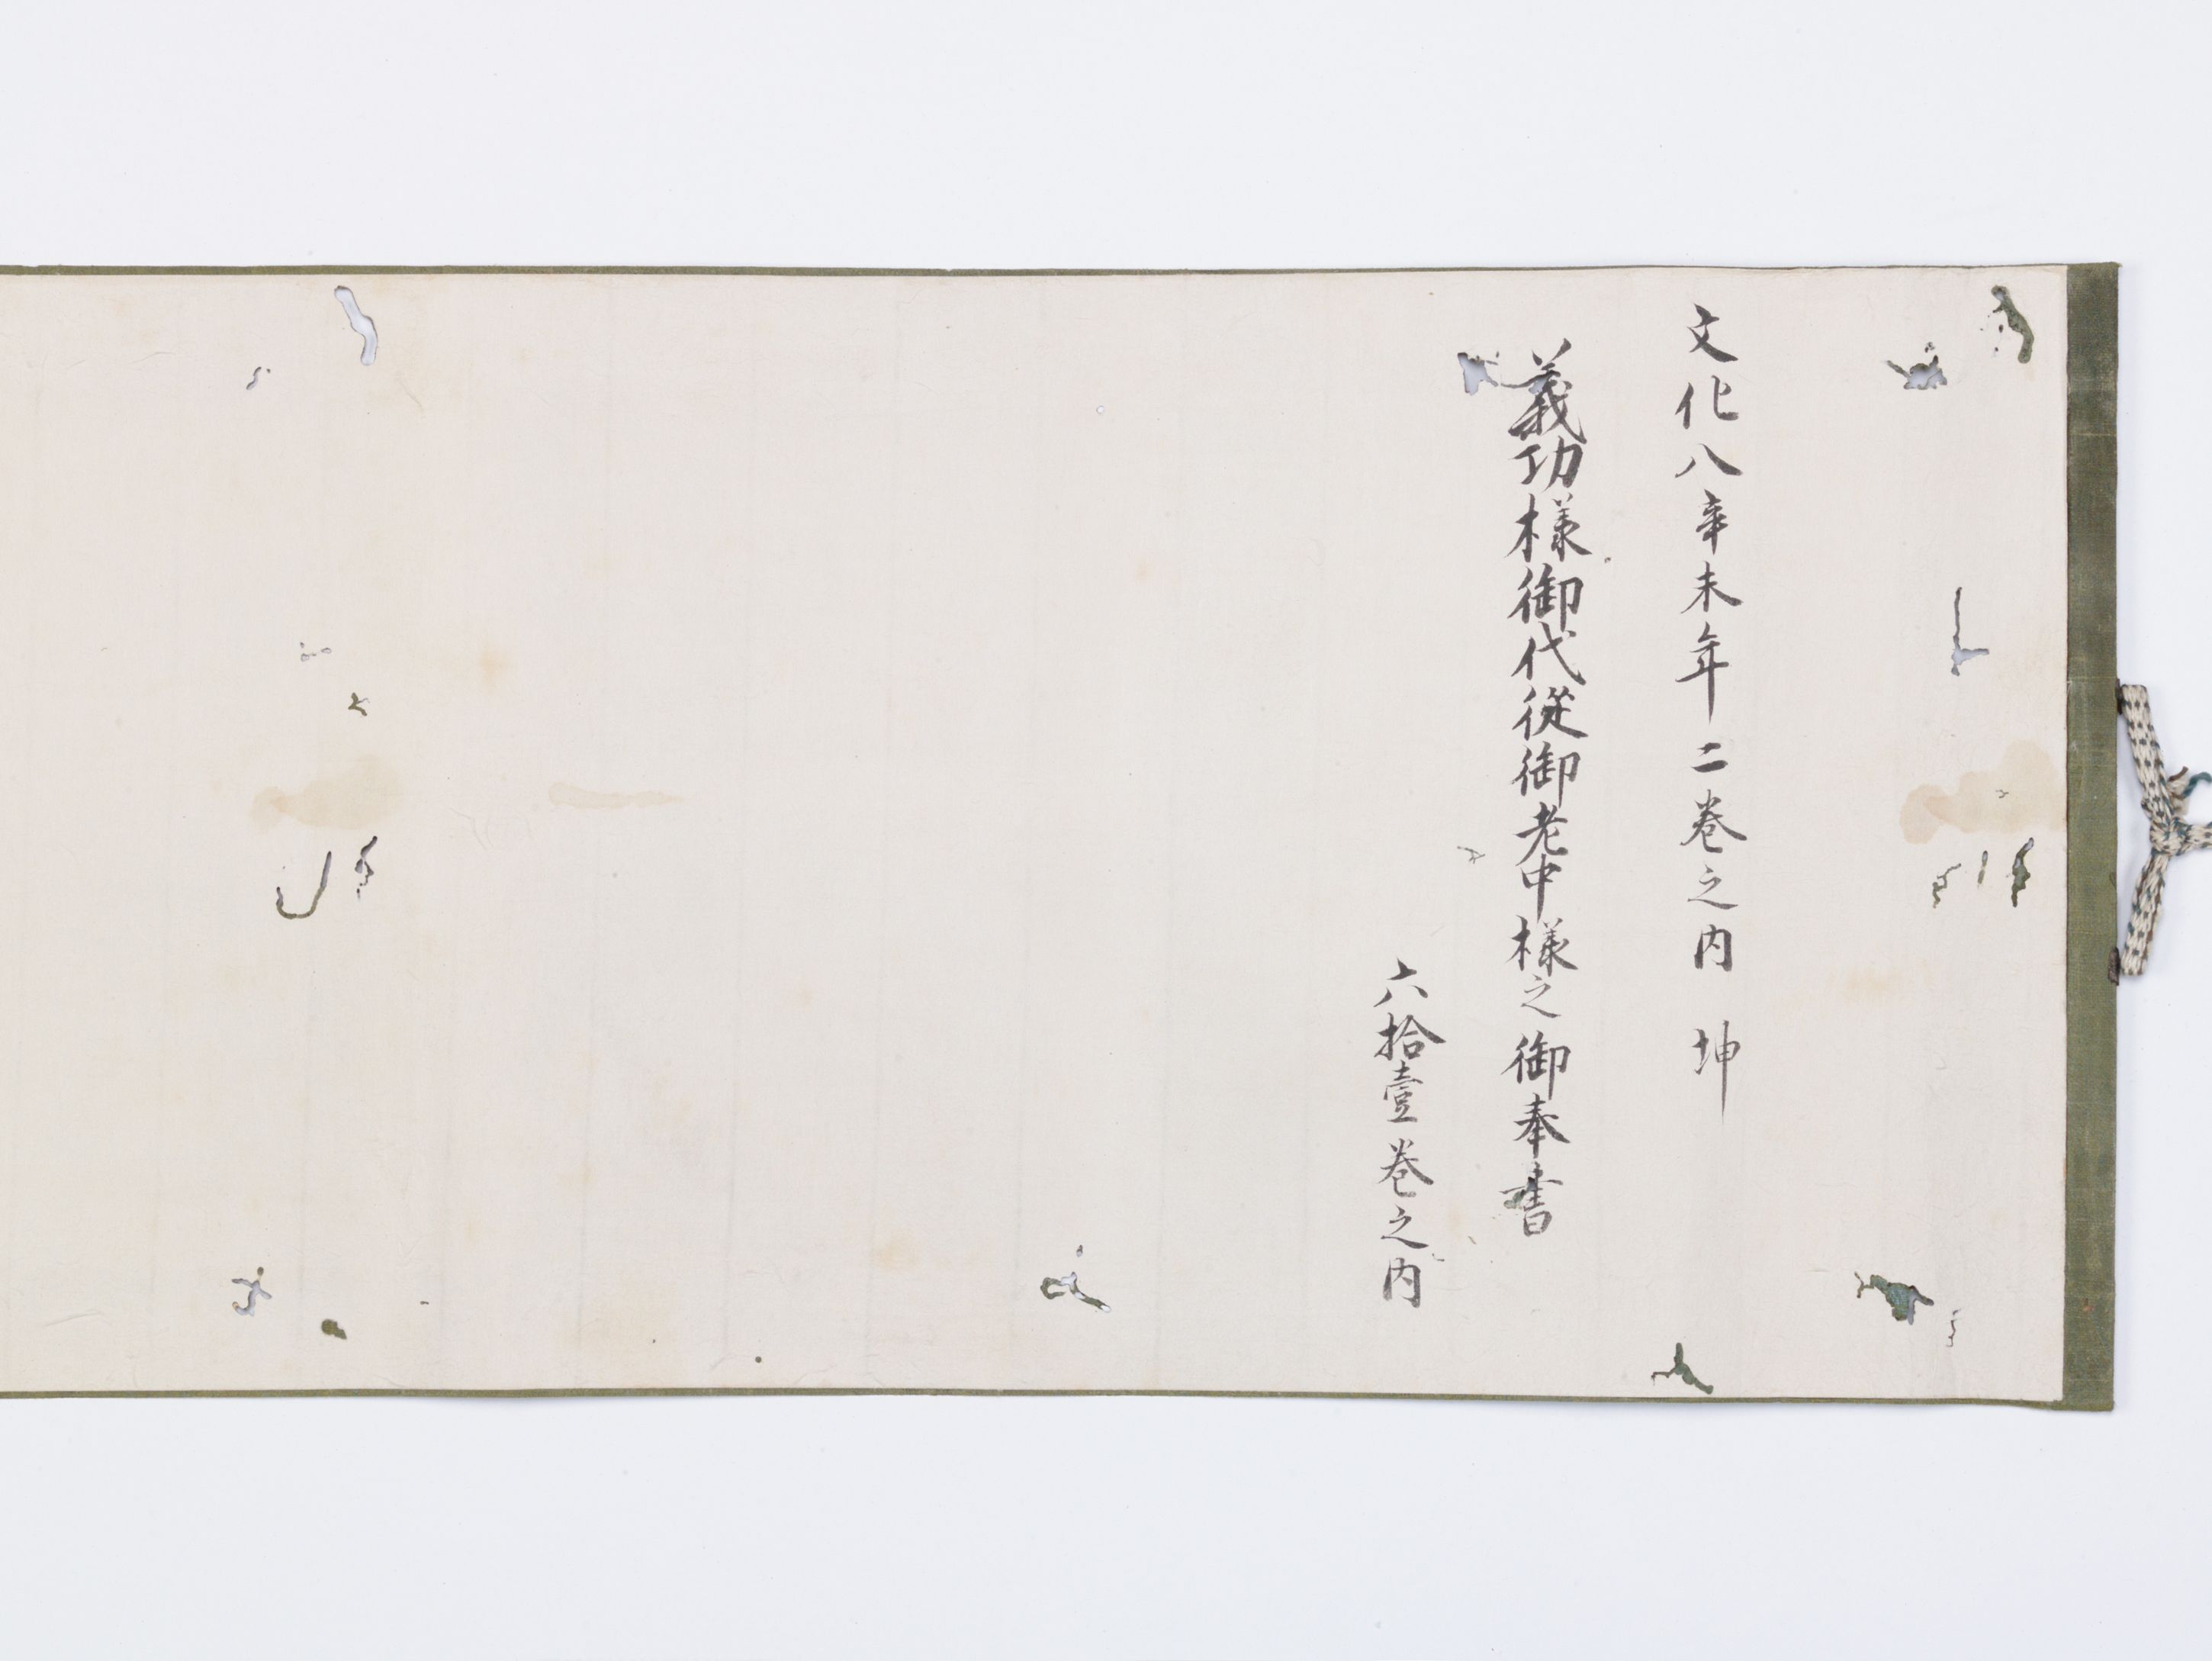 文化八辛未年二巻之内 坤
義功様御代從御老中様之御奉書
六拾壹巻之内